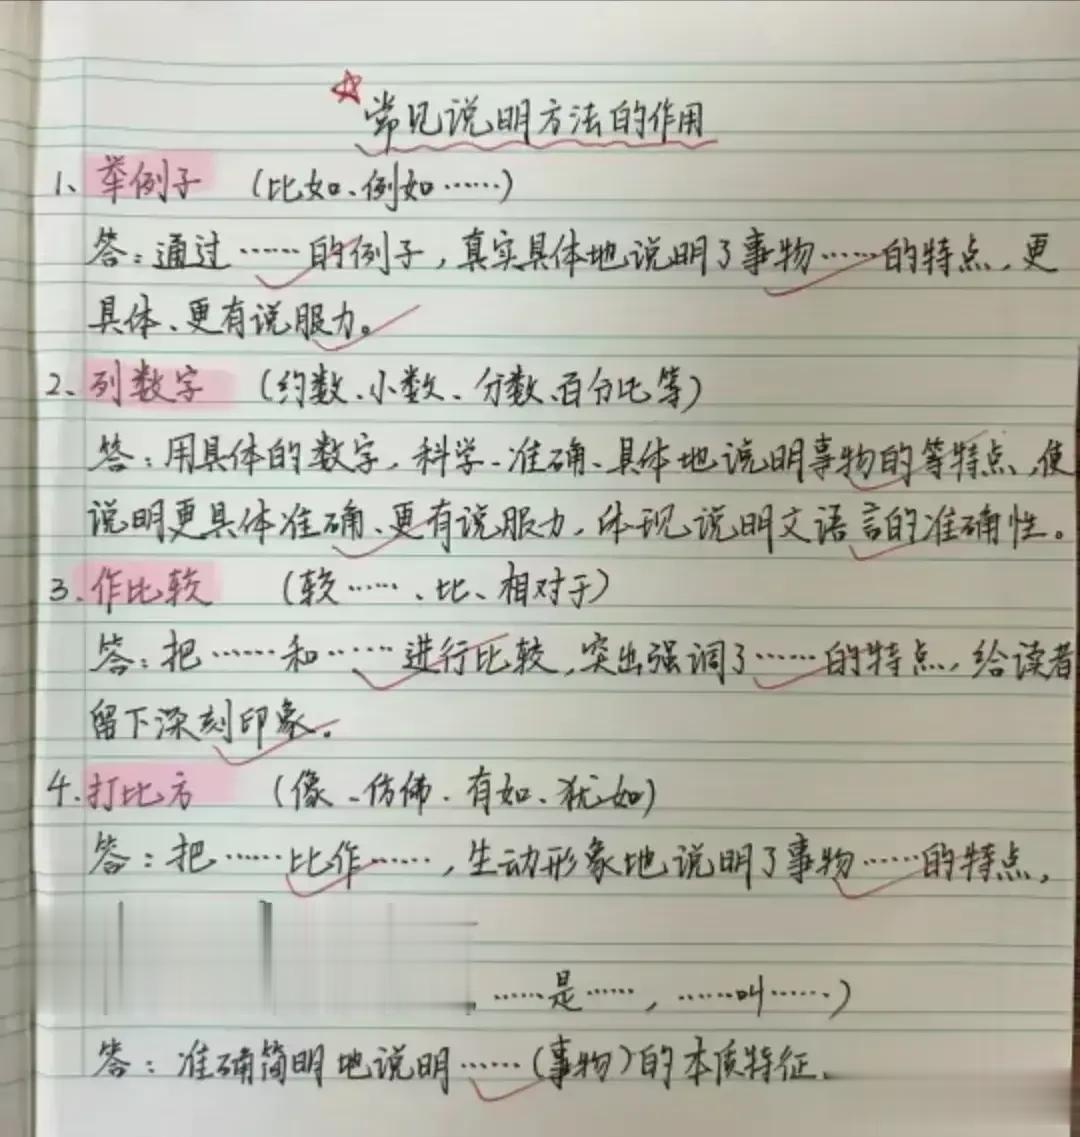 常见说明方法的作用
1、举例子 (比如、例如……)
答：通过……的例子，真实具体地说明了事物……的特点，更
具体、更有说服力。
2、列数字 (约数、小数、分数、百分比等)
答：用具体的数字，科学、准确、具体地说明事物的等特点，使
说明更具体准确、更有说服力，体现说明文语言的准确性。
3、作比较 (较……、比、相对于)
答：把……和……进行比较，突出强调了……的特点，给读者
留下深刻印象。
4、打比方 (像、仿佛、有如、犹如)
答：把……比作……，生动形象地说明了事物……的特点，
……是……，……叫……)
答：准确简明地说明……(事物)的本质特征、